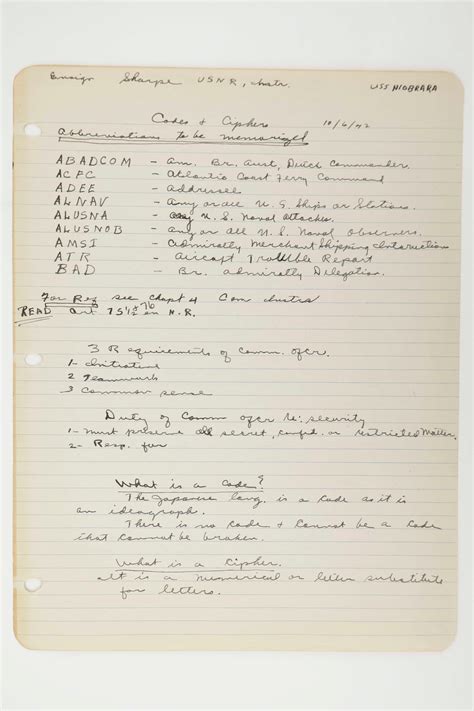 Ensign Sharpe USNR, Instr.
USS NIOBRARA
Codes & Ciphers 10/6/42
Abbreviations to be memorized
ABADCOM - Am. Br. Aust. Dutch Commander.
ACFC - Atlantic Coast Ferry Command
ADEE - Addressee
ALNAV - Any or all U.S. Ships or Stations.
ALUSNA - U.S. Naval Attaches.
ALUSNOB - Any or all U.S. Naval Observers.
AMSI - Admiralty Merchant Shipping Instruction
ATR - Aircraft Trouble Report
BAD - Br. Admiralty Delegation.
For Reg see Chapt 4 Com Instrs
READ art 75 1/2 + 76 in N.R.
3 Requirements of Comm. ofcr.
1- Initiative
2 Teamwork
3 Common sense
Duty of Comm ofcr re: security
1- must preserve all secret, confid. or restricted matter.
2- Resp. for
What is a Code?
The Japanese lang. is a code as it is
an ideograph.
There is no code & cannot be a code
that cannot be broken.
What is a Cipher.
It is a numerical or letter substitute
for letters.